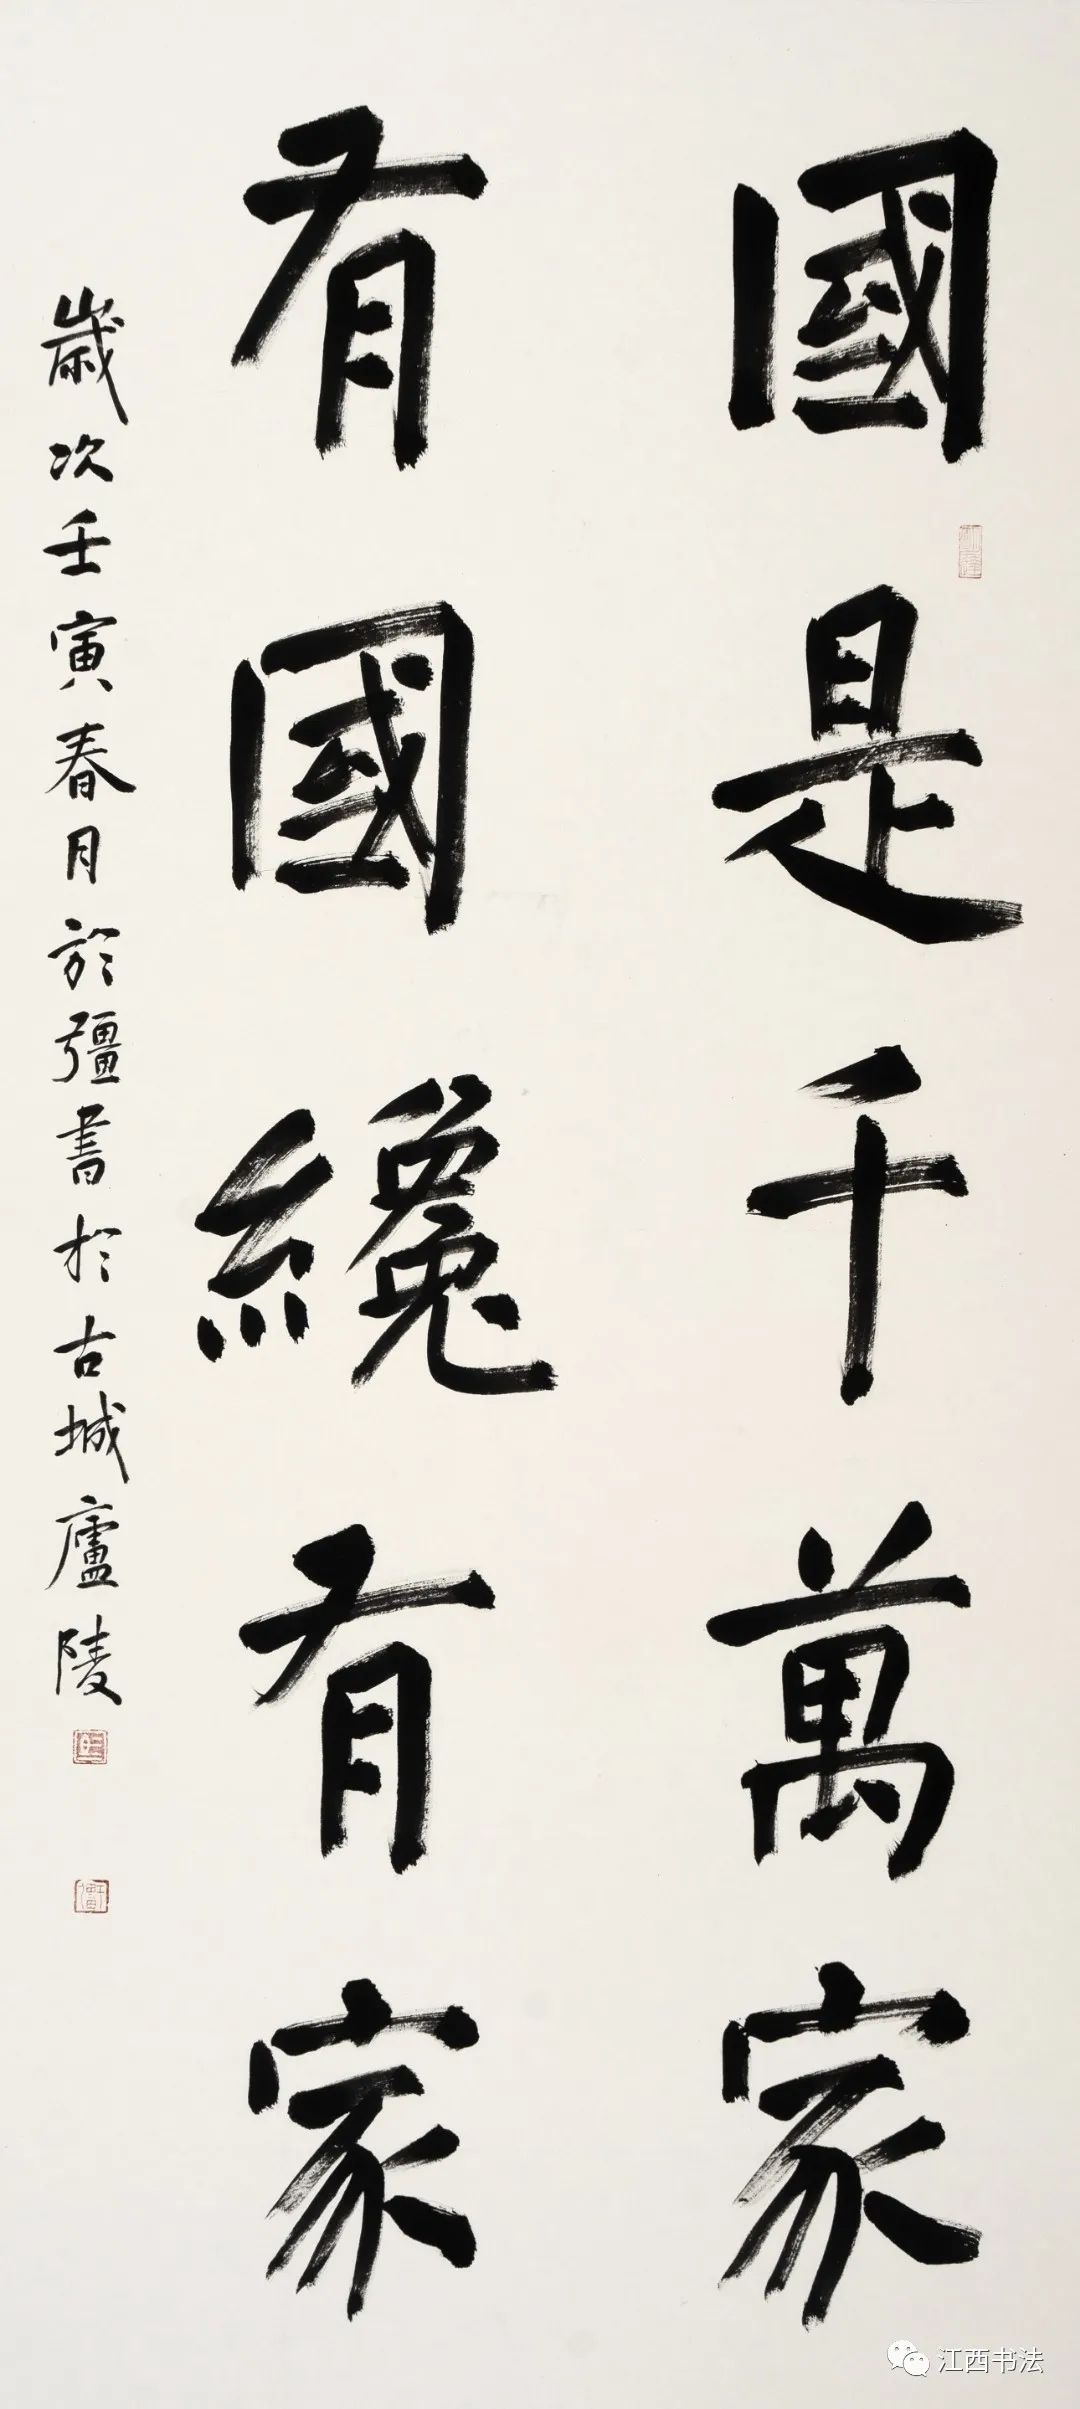 國是千萬家
有國纔有家
歲次壬寅春月於彊書於古城廬陵
江西书法